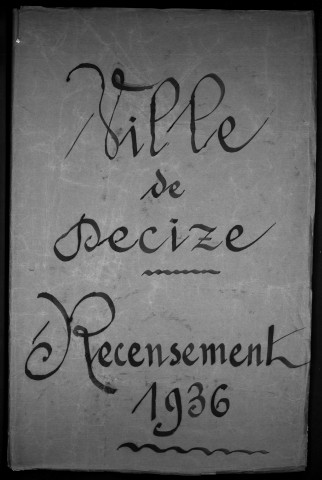 Ville
de
Decize
Recensement
1936